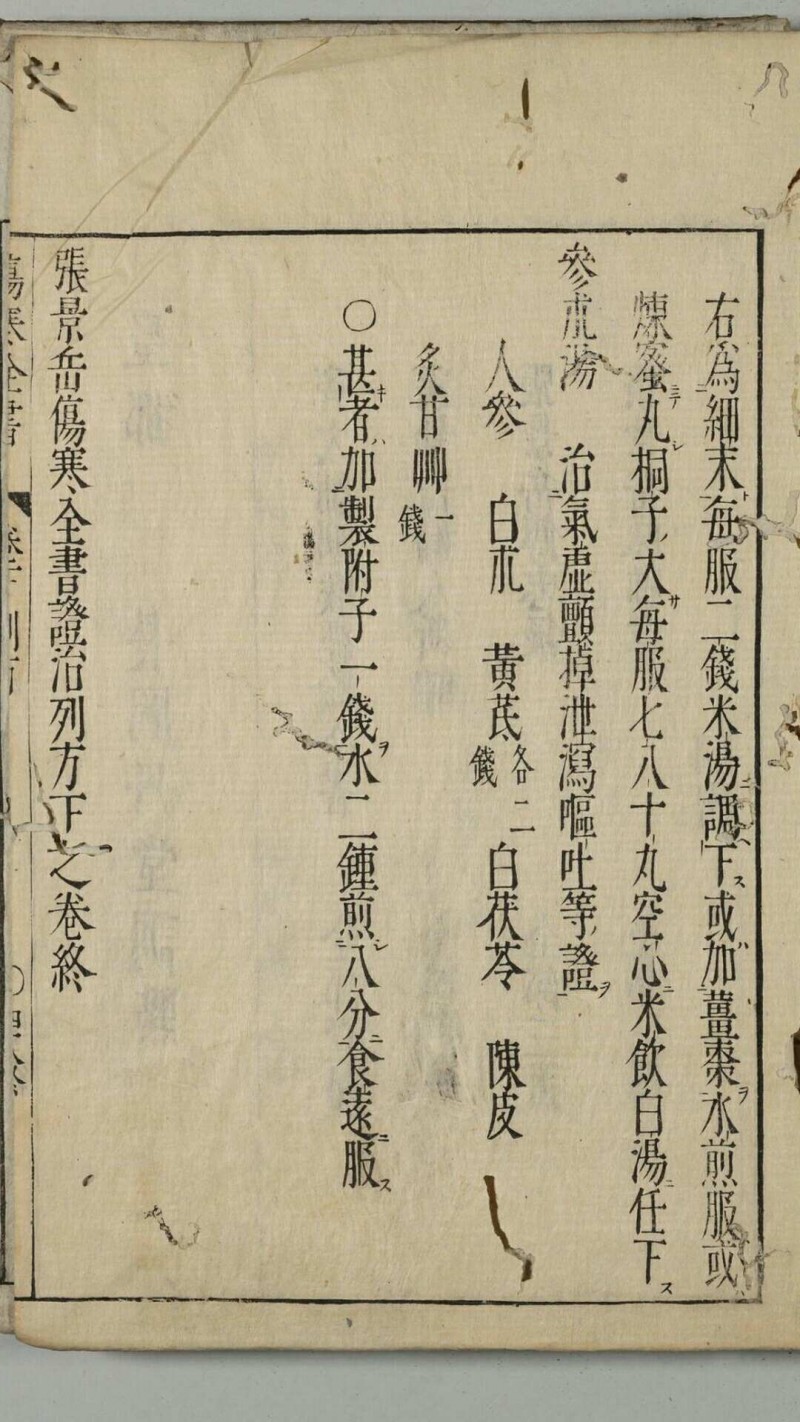 右爲細末每服二錢米湯調下或加薑棗水煎服或
煉蜜丸桐子大每服七八十丸空心米飲白湯任下
參朮湯　治氣虛顫掉泄瀉嘔吐等證
人參　白朮　黃茋各二錢　白茯苓　陳皮
炙甘艸一錢
〇甚者加製附子一錢水二鍾煎八分食遠服
張景岳傷寒全書證治列方下之卷終
傷寒全書